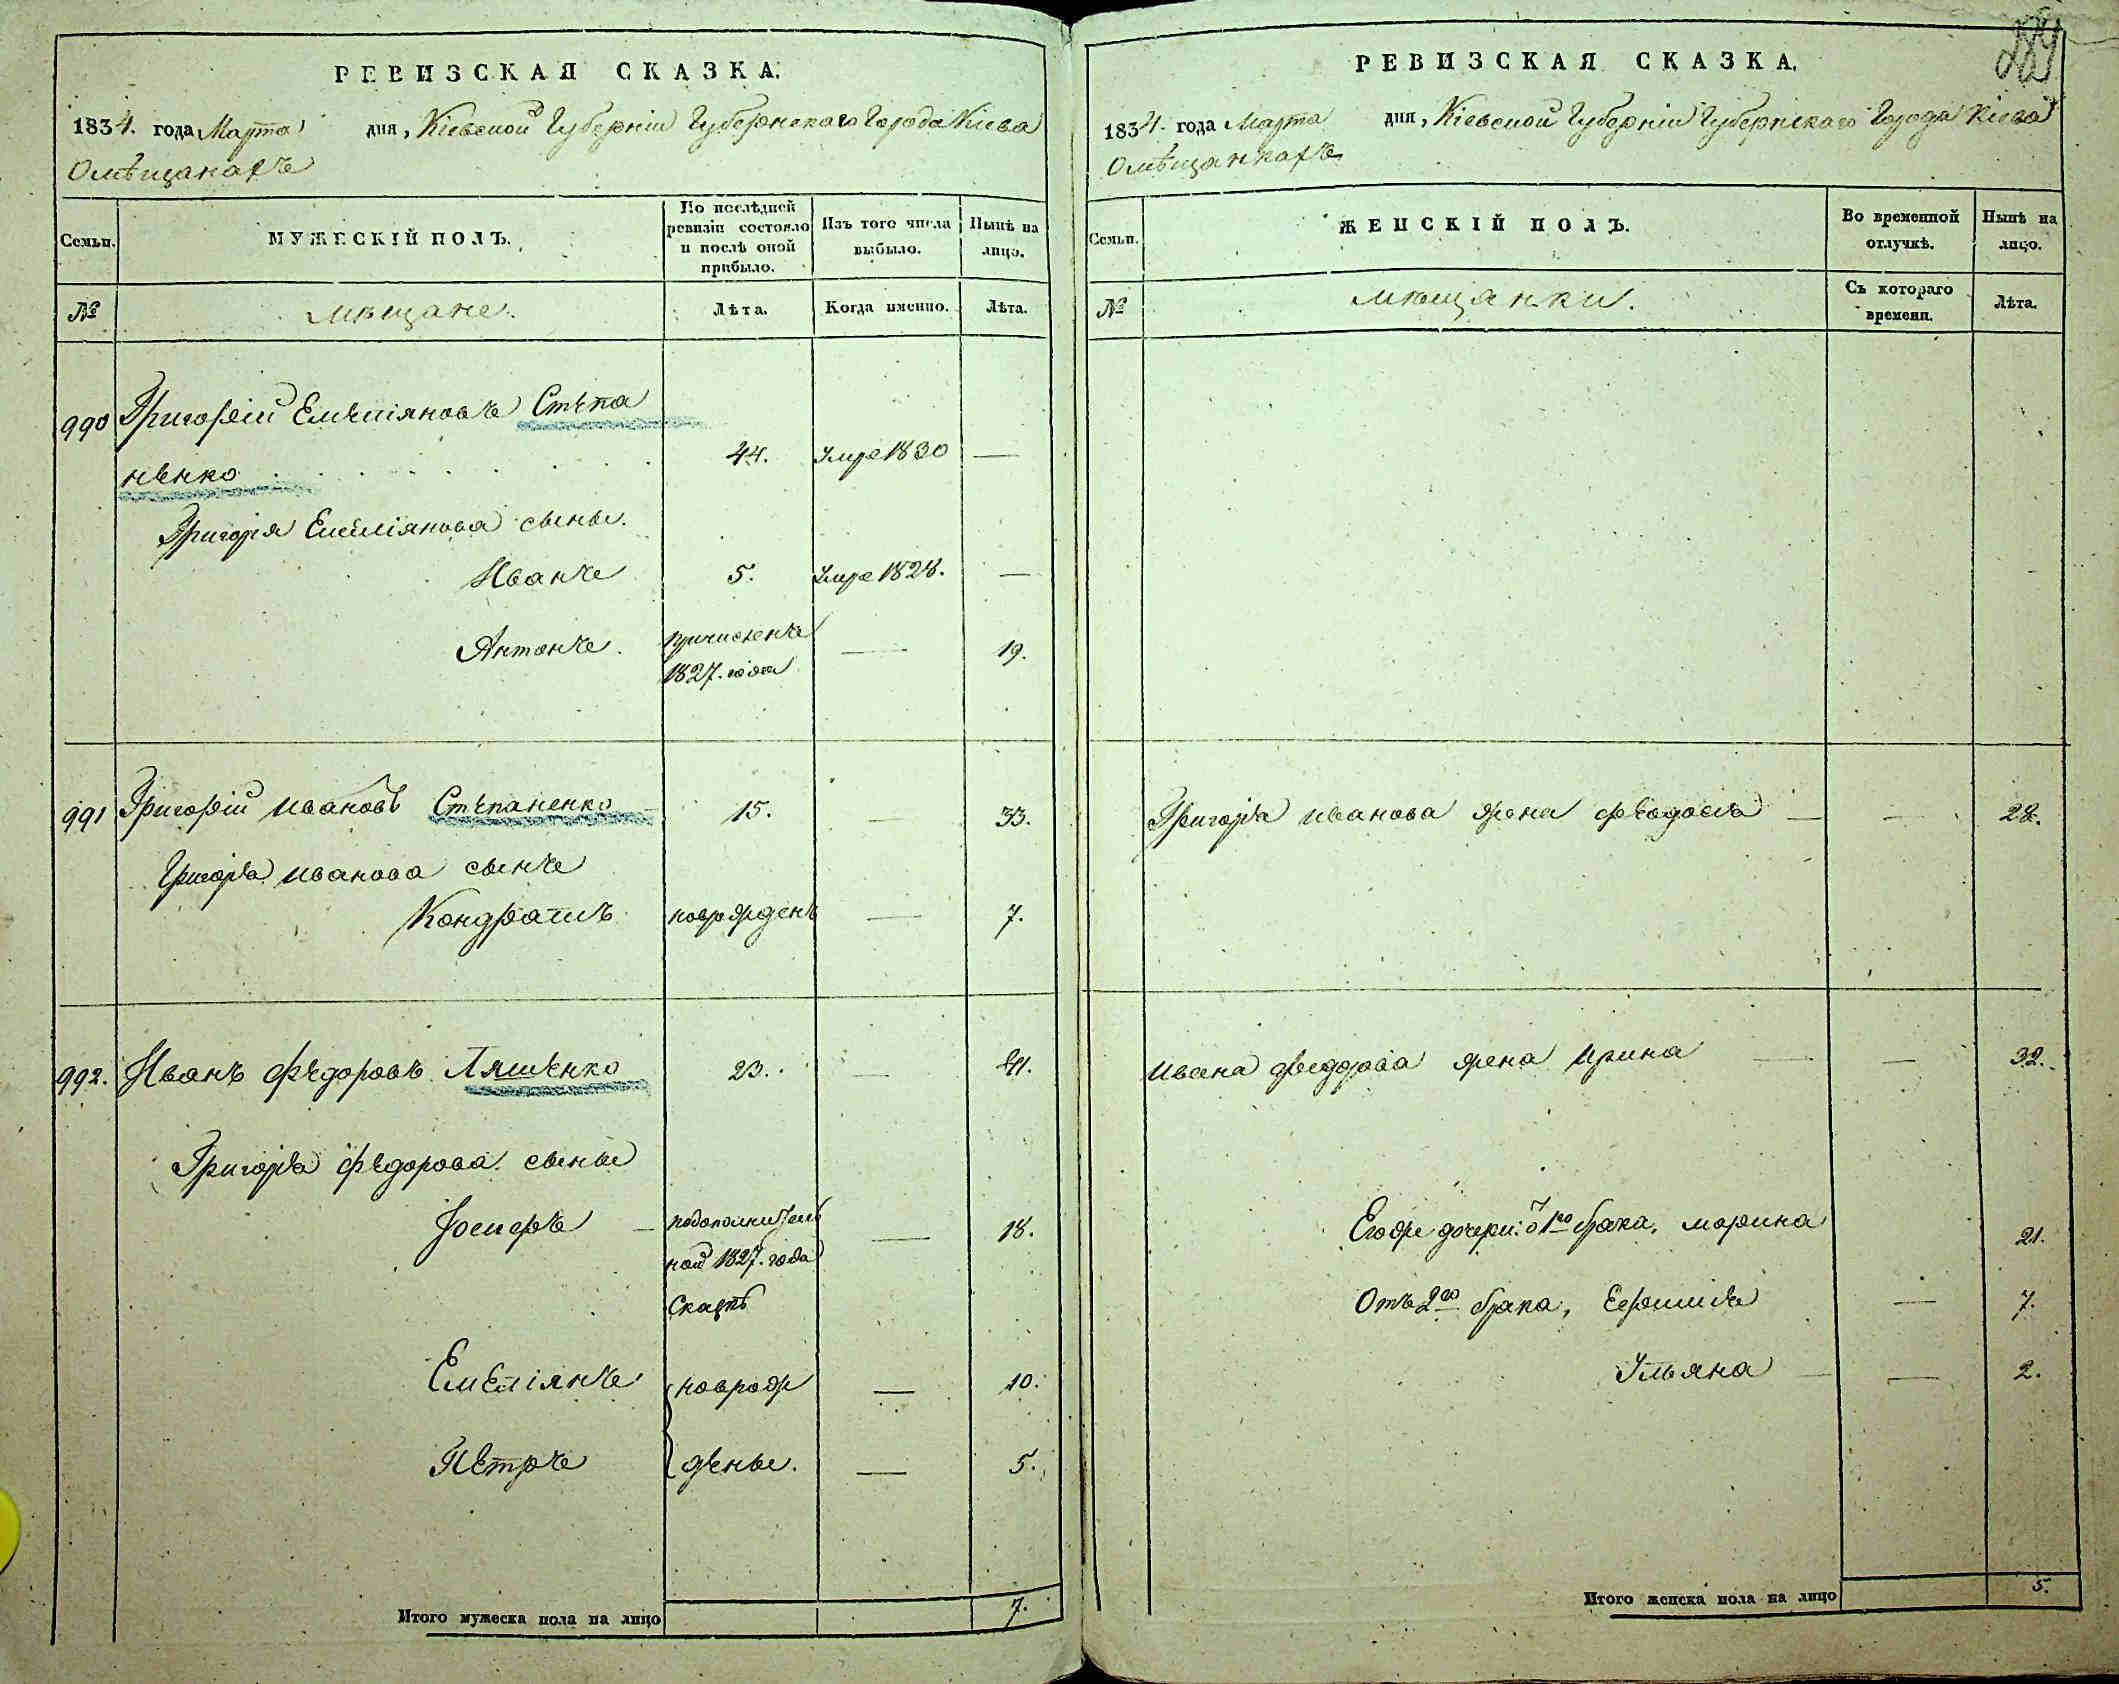 РЕВИЗСКАЯ СКАЗКА.
1834. года Марта дня, Кіевской Губерніи Губернскаго Города Кіева
О мѣщанахъ
Семьи.
МУЖЕСКІЙ ПОЛЪ.
По послѣдней ревизіи состояло и послѣ оной прибыло.
Изъ того числа выбыло.
Нынѣ на лицо.
№
мѣщане.
Лѣта.
Когда именно.
Лѣта.
990 Григорій Емельяновъ Степа
ненко 44. Умре 1830 —
Григорія Емеліянова сыны.
Иванъ 5. Умре 1828. —
Антонъ. причисленъ 1827. года — 19.
991 Григорій Ивановъ Степаненко 15. — 33.
Григорія Иванова сынъ
Кондратъ новорожденъ — 7.
992. Иванъ Федоровъ Ляшенко 23. — 41.
Григорія Федорова сыны
Іосифъ — по дополнитель
ной 1827. года — 18.
Сказкѣ
Емеліянъ новорож — 10.
Петръ дены. — 5.
Итого мужеска пола на лицо 7.
284
РЕВИЗСКАЯ СКАЗКА.
1834. года Марта дня, Кіевской Губерніи Губернскаго Города Кіева
О мѣщанкахъ
Семьи.
ЖЕНСКІЙ ПОЛЪ.
Во временной отлучкѣ.
Нынѣ на лицо.
№
мѣщанки.
Съ котораго времени.
Лѣта.
Григорія Иванова жена Феодосія — — 28.
Ивана Федорова жена Ирина — — 32.
Егоже дочери: о 1го брака, Марина 21.
Отъ 2го брака, Ефимія — 7.
Ульяна — — 2.
Итого женска пола на лицо 5.